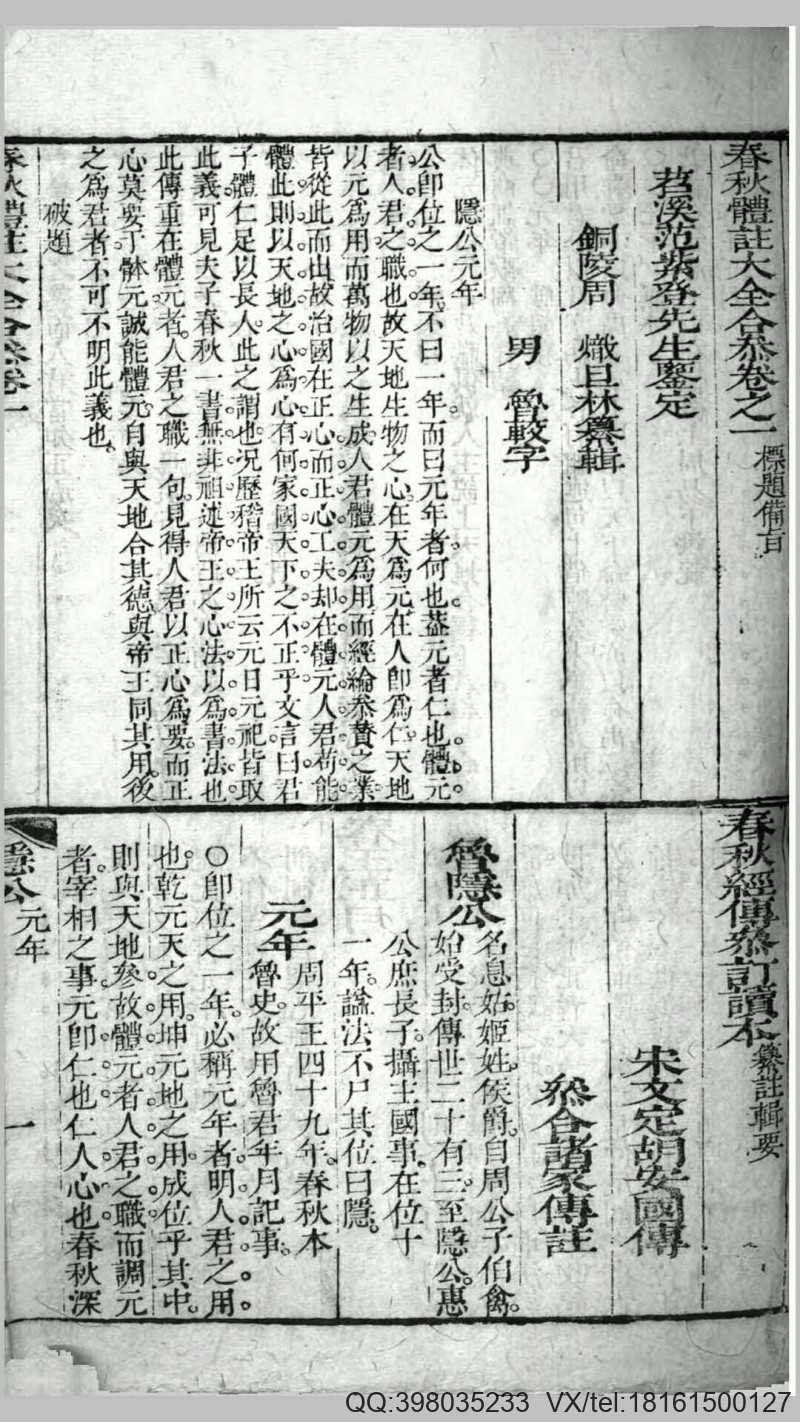 春秋體註大全合叅卷之一 標題備旨
苕溪范紫登先生鑒定
銅陵周 熾旦林纂輯
男 魯較字
隱公元年
公卽位之一年不曰一年而曰元年者何也葢元者仁也體元
者人君之職也故天地生物之心在天爲元在人卽爲仁天地
以元爲用而萬物以之生成人君體元爲用而經綸叅贊之業
皆從此而出故治國在正心而正心工夫却在體元人君苟能
體此則以天地之心爲心有何家國天下之不正乎文言曰君
子體仁足以長人此之謂也况歷稽帝王所云元日元祀皆取
此義可見夫子春秋一書無非祖述帝王之心法以爲書法也
此傳重在體元者人君之職一句見得人君以正心爲要而正
心莫要于體元誠能體元自與天地合其德與帝王同其用後
之爲君者不可不明此義也
破題
春秋體註大全合叅卷一
春秋經傳叅訂讀本 纂註輯要
宋文定胡安國傳
叅合諸家傳註
魯隱公 名息姑姬姓侯爵自周公子伯禽
始受封傳世二十有三至隱公惠
公庶長子攝主國事在位十
一年諡法不尸其位曰隱
元年 周平王四十九年春秋本
魯史故用魯君年月記事
○卽位之一年必稱元年者明人君之用
也乾元天之用坤元地之用成位乎其中
則與天地參故體元者人君之職而調元
者宰相之事元卽仁也仁人心也春秋深
隱公 元年 一
QQ:398035233 VX/tel:18161500127